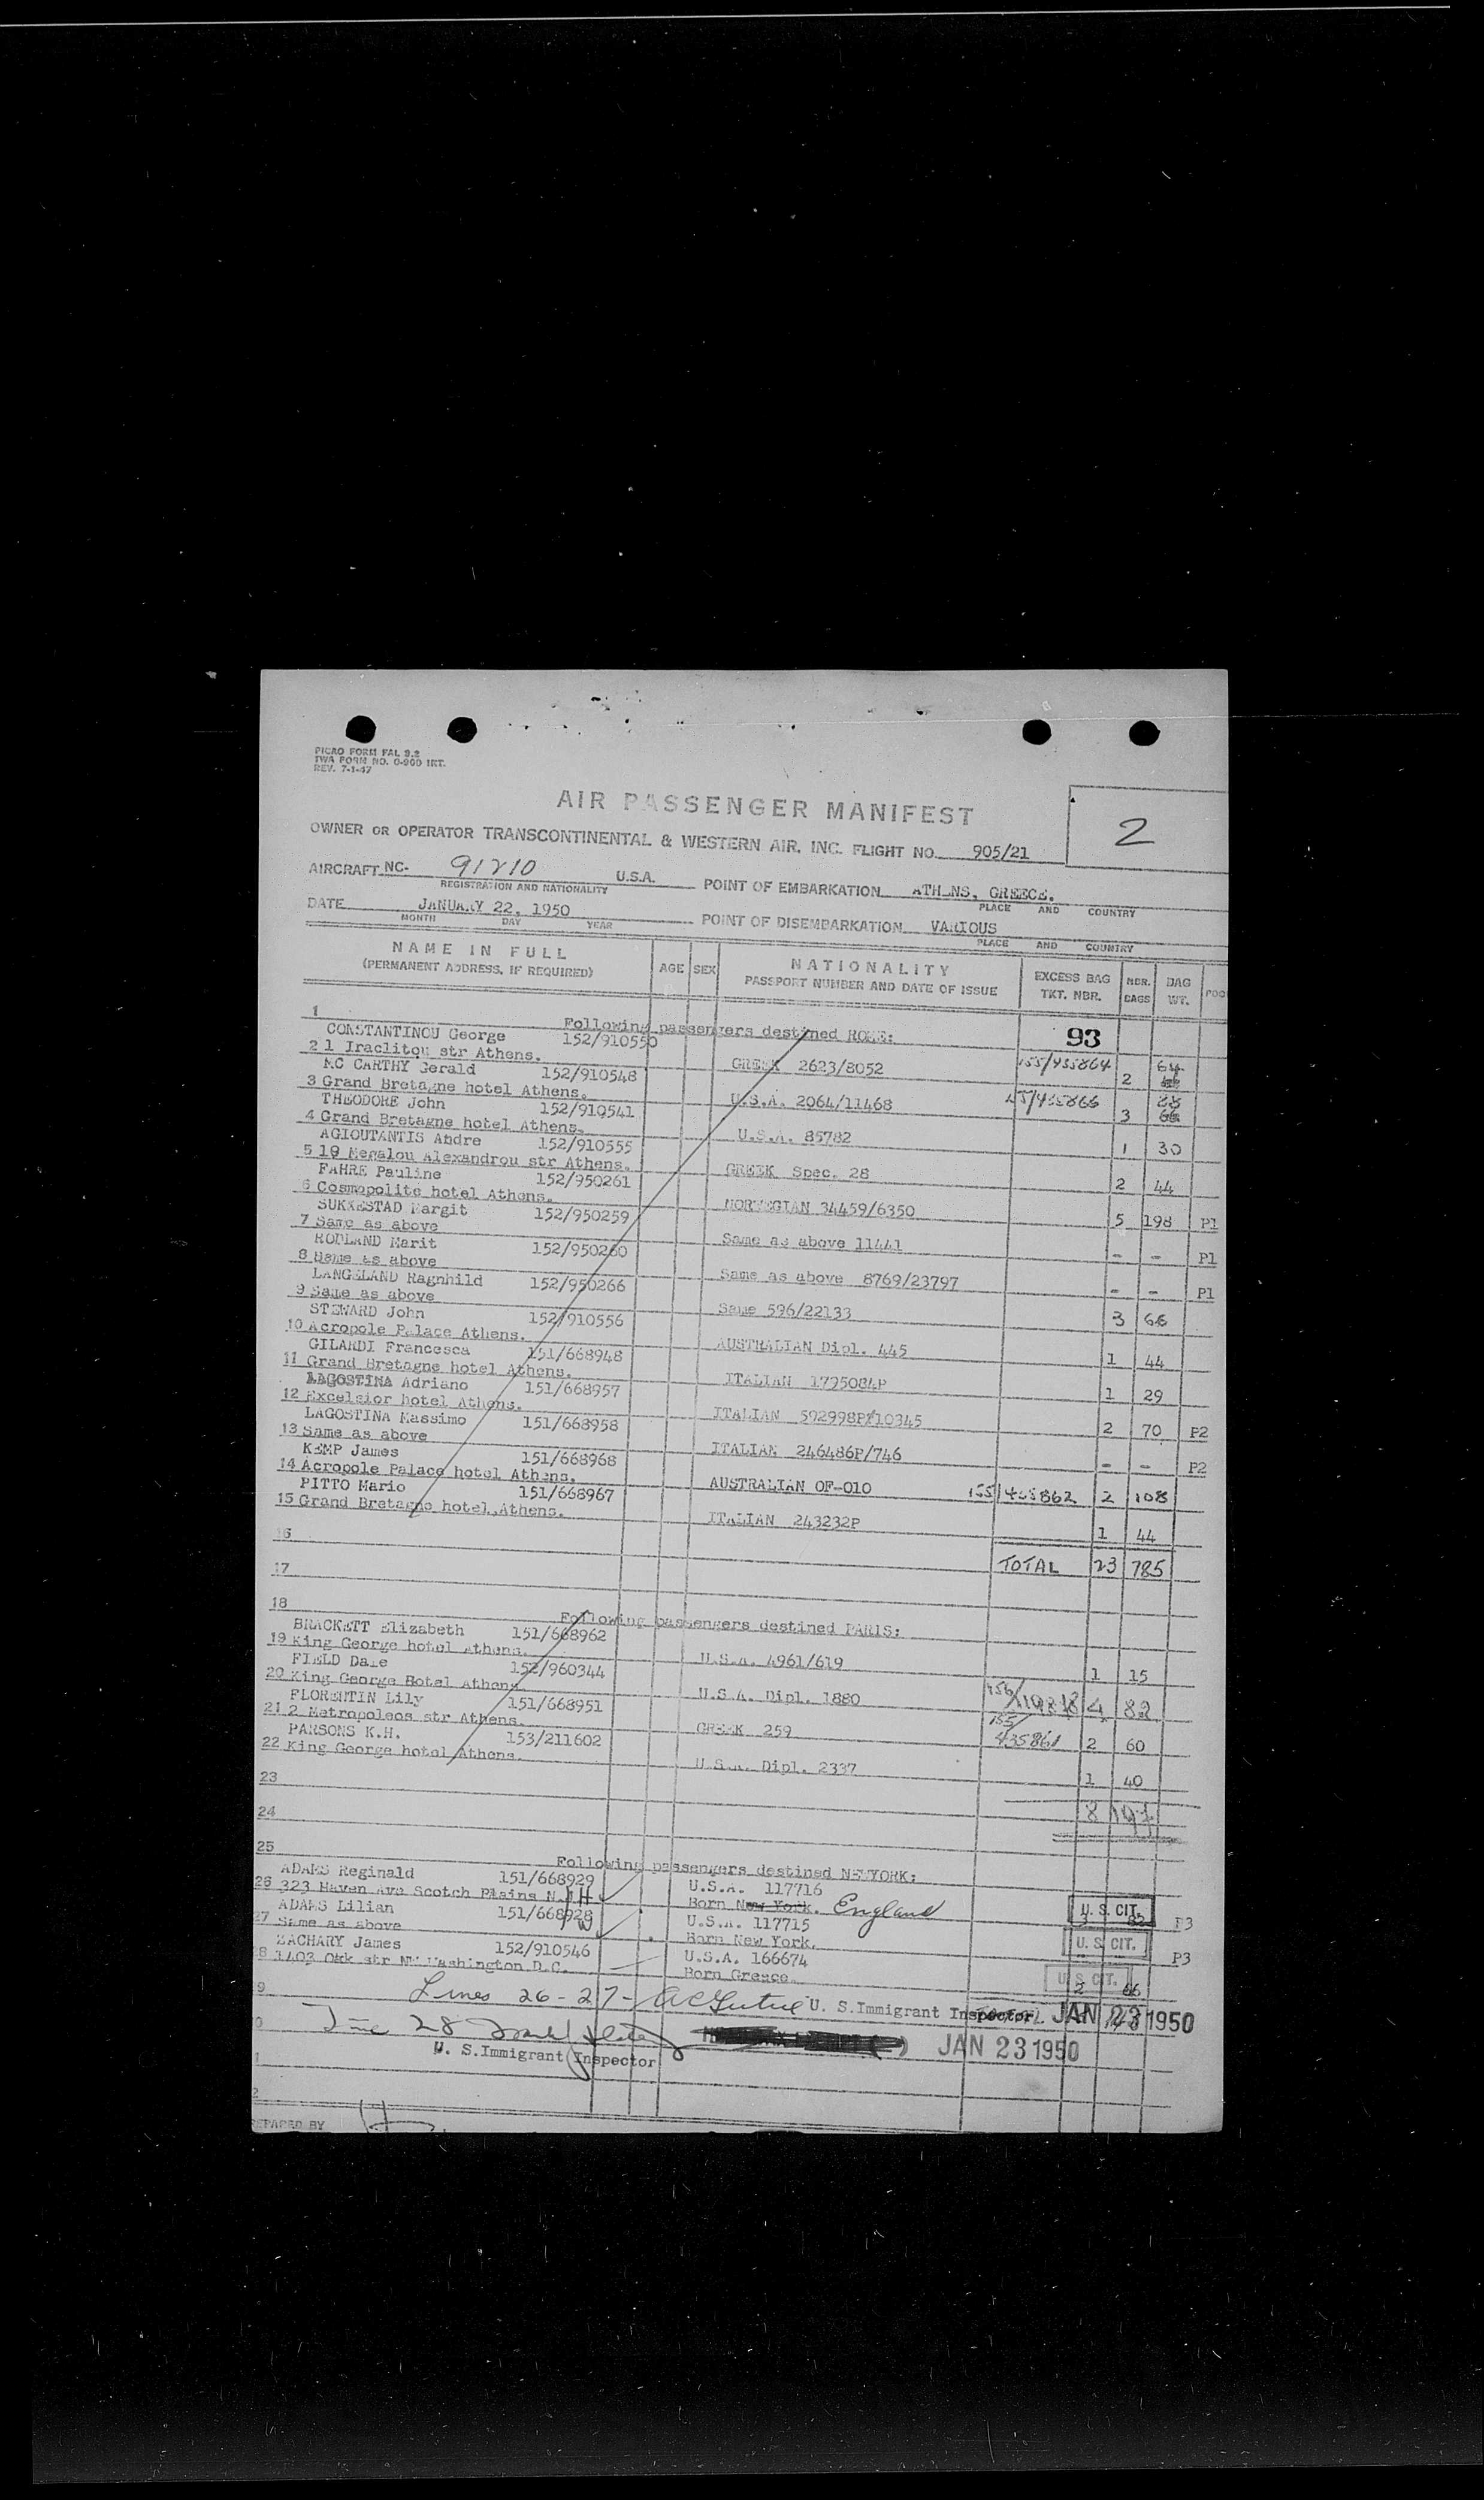 PICAO FORM FAL 9.2
TWA FORM NO. O-900 INT.
REV. 7-1-47
AIR PASSENGER MANIFEST
2
OWNER OR OPERATOR TRANSCONTINENTAL & WESTERN AIR, INC. FLIGHT NO. 905/21
AIRCRAFT NC- 91210 U.S.A. POINT OF EMBARKATION ATHENS, GREECE.
REGISTRATION AND NATIONALITY PLACE AND COUNTRY
DATE JANUARY 22, 1950 POINT OF DISEMBARKATION VARIOUS
MONTH DAY YEAR PLACE AND COUNTRY
NAME IN FULL AGE SEX NATIONALITY EXCESS BAG NBR. BAG POO
(PERMANENT ADDRESS, IF REQUIRED) PASSPORT NUMBER AND DATE OF ISSUE TKT. NBR. BAGS WT.
1 Following passengers destined ROME: 93
CONSTANTINOU George 152/910550
2 1 Iraclitou str Athens. GREEK 2623/8052 155/435864 2 64
MC CARTHY Gerald 152/910548
3 Grand Bretagne hotel Athens. U.S.A. 2064/11468 3
THEODORE John 152/910541
4 Grand Bretagne hotel Athens. U.S.A. 85782 1 30
AGIOUTANTIS Andre 152/910555
5 19 Megalou Alexandrou str Athens. GREEK Spec. 28 2 44
FAHRE Pauline 152/950261
6 Cosmopolite hotel Athens. NORWEGIAN 34459/6350 5 198 P1
SUKKESTAD Margit 152/950259
7 Same as above Same as above 11441 - - P1
RODLAND Marit 152/950260
8 Same as above Same as above 8769/23797 - - P1
LANGELAND Ragnhild 152/950266
9 Same as above Same 596/22133 3 66
STEWARD John 152/910556
10 Acropole Palace Athens. AUSTRALIAN Dipl. 445 1 44
GILARDI Francesca 151/668948
11 Grand Bretagne hotel Athens. ITALIAN 1795084P 1 29
LAGOSTINA Adriano 151/668957
12 Excelsior hotel Athens. ITALIAN 592998P/10345 2 70 P2
LAGOSTINA Massimo 151/668958
13 Same as above ITALIAN 246486P/746 - - P2
KEMP James 151/668968
14 Acropole Palace hotel Athens. AUSTRALIAN OF-010 155/435862 2 108
PITTO Mario 151/668967
15 Grand Bretagne hotel Athens. ITALIAN 243232P 1 44
16 TOTAL 23 785
17
18 Following passengers destined PARIS:
BRACKETT Elizabeth 151/668962
19 King George hotel Athens. U.S.A. 4961/619 1 15
FIELD Dale 152/960344
20 King George Hotel Athens U.S.A. Dipl. 1880 156/ 4 82
FLORENTIN Lily 151/668951
21 2 Metropoleos str Athens. GREEK 259 155/435861 2 60
PARSONS K.H. 153/211602
22 King George hotel Athens. U.S.A. Dipl. 2337 1 40
23 8 197
24
25 Following passengers destined NEWYORK:
ADAMS Reginald 151/668929 U.S.A. 117716
26 323 Haven Ave Scotch Plains N.J. H Born New York. England U.S. CIT. P3
ADAMS Lilian 151/668928 U.S.A. 117715
27 Same as above W Born New York. U.S. CIT. P3
ZACHARY James 152/910546 U.S.A. 166674
28 1403 Oak str NW Washington D.C. Born Greece. U.S. CIT. 2 66
9 Lines 26-27- U. S. Immigrant Inspector JAN 23 1950
0 Line 28 JAN 23 1950
1 U. S. Immigrant Inspector
2
REPARED BY